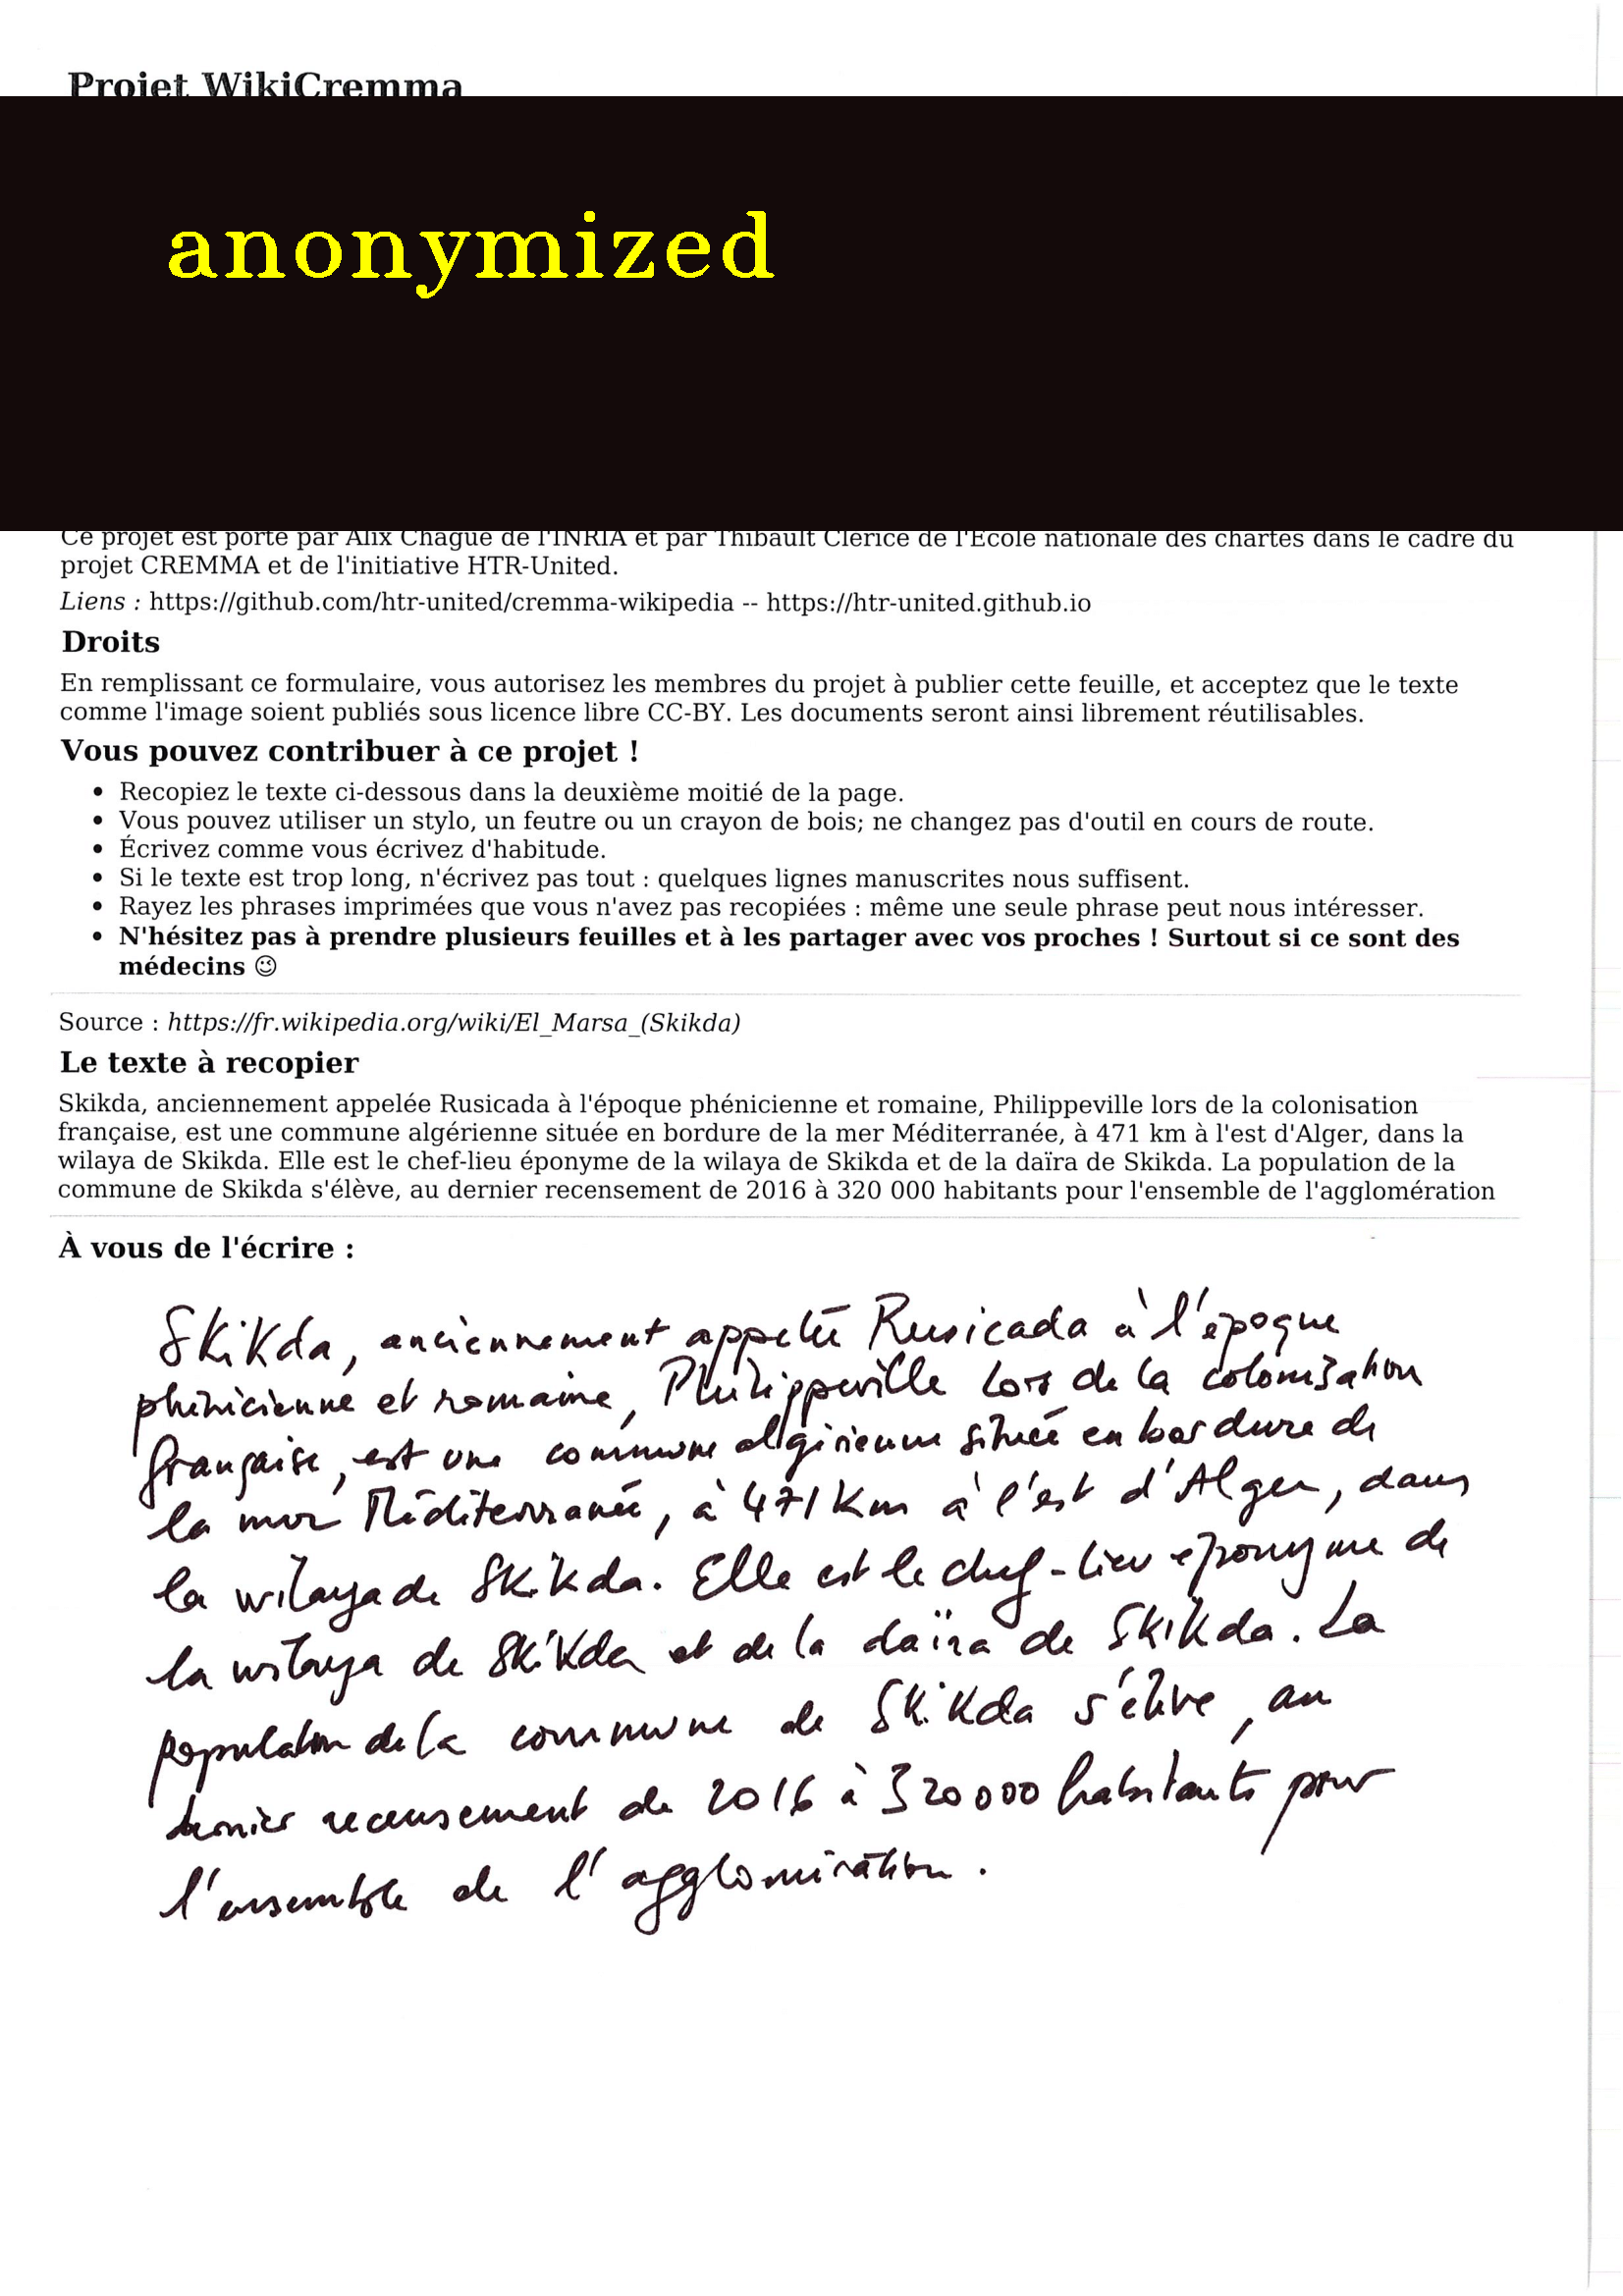 Projet WikiCremma
anonymized
Ce projet est porté par Alix Chagué de l'INRIA et par Thibault Clérice de l'École nationale des chartes dans le cadre du
projet CREMMA et de l'initiative HTR-United.
Liens : https://github.com/htr-united/cremma-wikipedia -- https://htr-united.github.io
Droits
En remplissant ce formulaire, vous autorisez les membres du projet à publier cette feuille, et acceptez que le texte
comme l'image soient publiés sous licence libre CC-BY. Les documents seront ainsi librement réutilisables.
Vous pouvez contribuer à ce projet !
• Recopiez le texte ci-dessous dans la deuxième moitié de la page.
• Vous pouvez utiliser un stylo, un feutre ou un crayon de bois; ne changez pas d'outil en cours de route.
• Écrivez comme vous écrivez d'habitude.
• Si le texte est trop long, n'écrivez pas tout : quelques lignes manuscrites nous suffisent.
• Rayez les phrases imprimées que vous n'avez pas recopiées : même une seule phrase peut nous intéresser.
• N'hésitez pas à prendre plusieurs feuilles et à les partager avec vos proches ! Surtout si ce sont des
médecins 😉
Source : https://fr.wikipedia.org/wiki/El_Marsa_(Skikda)
Le texte à recopier
Skikda, anciennement appelée Rusicada à l'époque phénicienne et romaine, Philippeville lors de la colonisation
française, est une commune algérienne située en bordure de la mer Méditerranée, à 471 km à l'est d'Alger, dans la
wilaya de Skikda. Elle est le chef-lieu éponyme de la wilaya de Skikda et de la daïra de Skikda. La population de la
commune de Skikda s'élève, au dernier recensement de 2016 à 320 000 habitants pour l'ensemble de l'agglomération
À vous de l'écrire :
Skikda, anciennement appelée Rusicada à l'époque
phénicienne et romaine, Philippeville lors de la colonisation
française, est une commune algérienne située en bordure de
la mer Méditerranée, à 471 km à l'est d'Alger, dans
la wilaya de Skikda. Elle est le chef-lieu éponyme de
la wilaya de Skikda et de la daïra de Skikda. La
population de la commune de Skikda s'élève, au
dernier recensement de 2016 à 320 000 habitants pour
l'ensemble de l'agglomération.